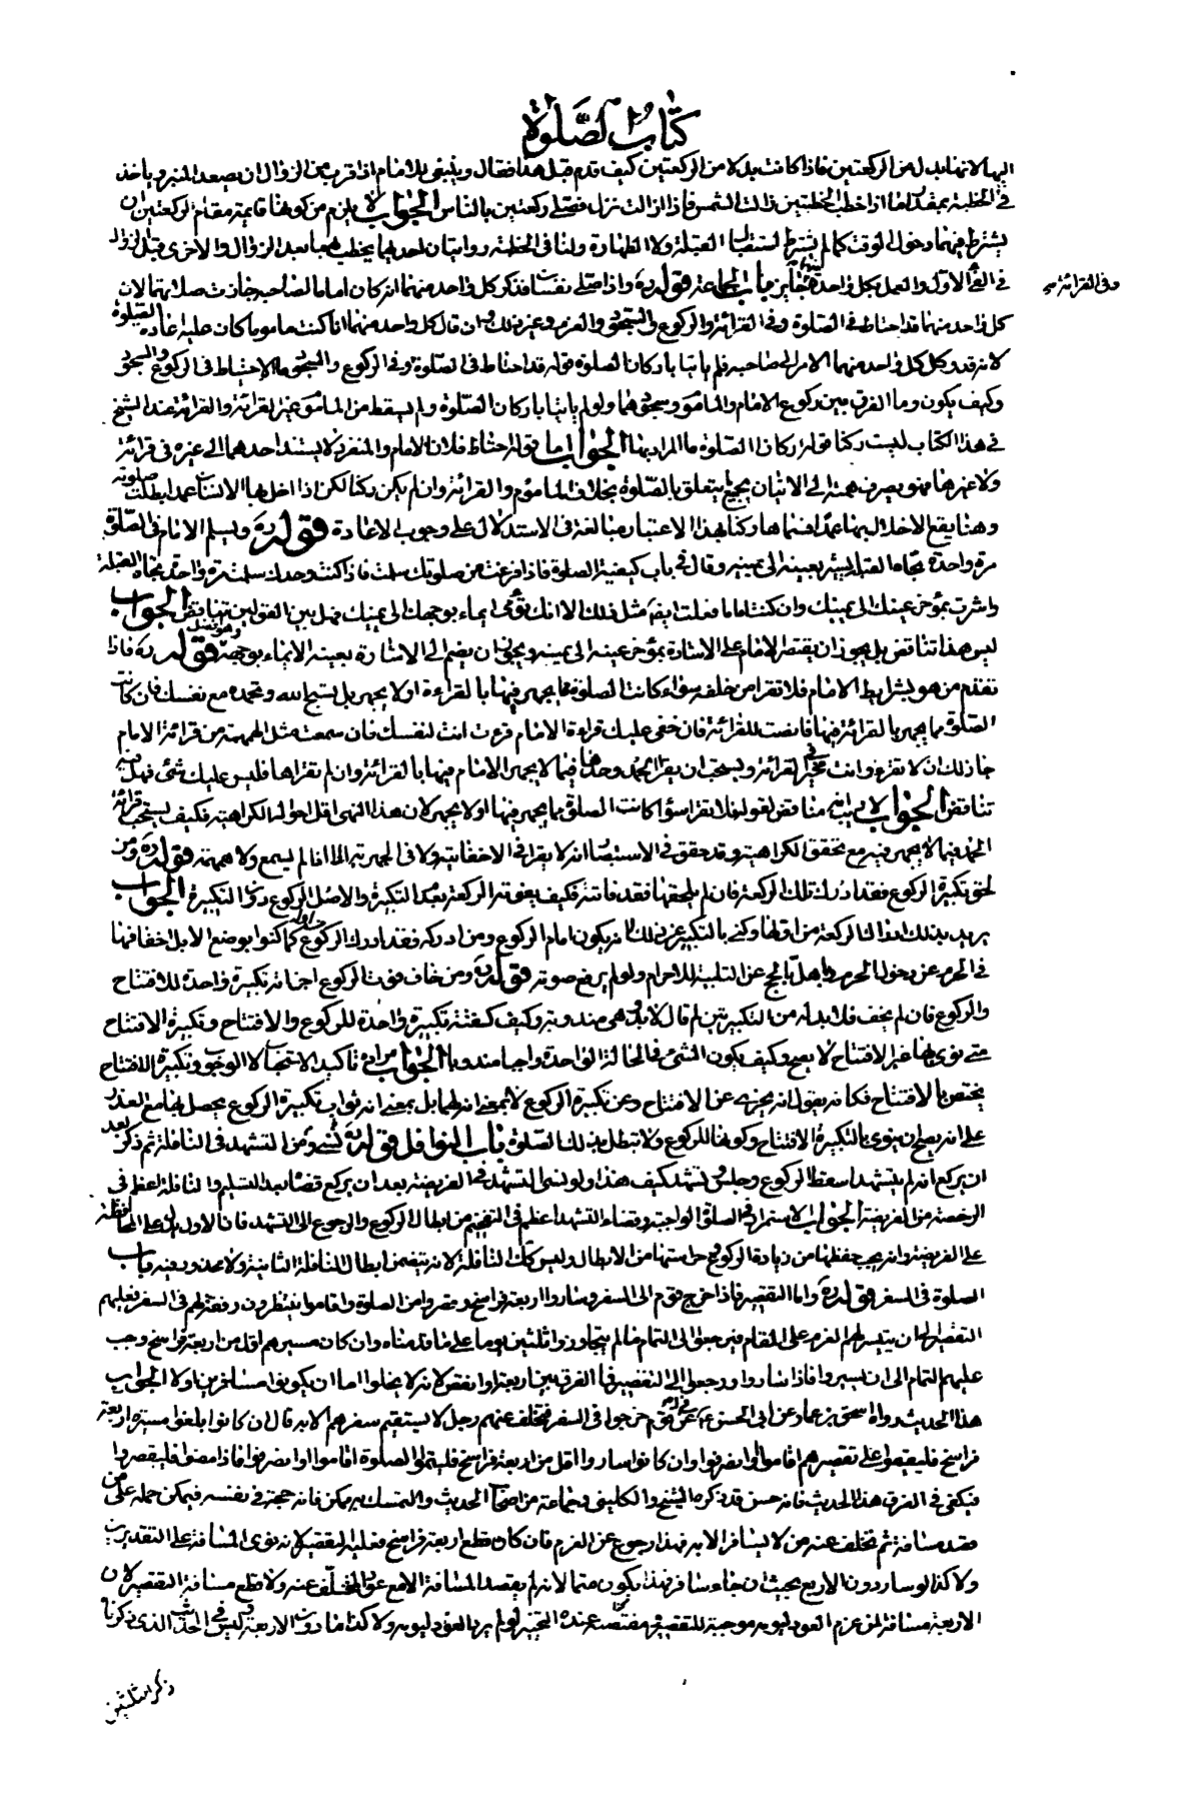 كتاب الصلوة
اليها لانها بدل من الركعتين فاذا كانت بدلا من الركعتين كيف قدم قبل هذا فقال وينبغي للامام اذا قرب من الزوال ان يصعد المنبر وياخذ
في الخطبة بمقدار ما اذا خطب الخطبتين زالت الشمس فاذا زالت نزل فصلى ركعتين بالناس الجواب لا يلزم من كونها قايمة مقام الركعتين ان
يشترط فيهما دخول الوقت كما لم يشترط استقبال القبلة ولا الطهارة ولنا في الخطبة روايتان احدهما يخطب بهما بعد الزوال والاخرى قبل الزوال
في الفئ الاول والعمل بكل واحدة منهما جايز باب الجماعة قوله ره واذا صلى نفسان فذكر كل واحد منهما انه كان اماما لصاحبه جازت صلاتهما لان
كل واحد منهما قد احتاط في الصلوة وفي القرائة والركوع والسجود والعزم وغير ذلك وان قال كل واحد منهما انا كنت ماموما كان عليه اعادة الصلوة
لانه قد وكل كل واحد منهما الامر الى صاحبه فلم ياتيا باركان الصلوة قوله قد احتاط في الصلوة وفي الركوع والسجود ما الاحتياط في الركوع والسجود
وكيف يكون وما الفرق بين ركوع الامام والماموم وسجودهما ولو لم ياتيا باركان الصلوة ولم يسقط من الماموم غير القرائة والقرائة عند الشيخ
في هذا الكتاب ليست ركنا قوله اركان الصلوة ما المراد بها الجواب اما قوله احتاط فلان الامام والمنفرد لا يستند احدهما الى غيره في قرائة
ولا غيرها فهو يصرف همته الى الاتيان بجميع ما يتعلق بالصلوة بخلاف الماموم والقرائة وان لم يكن ركنا لكن اذا اخل بها الانسان عمدا بطلت صلوته
وهنا يقع الاخلال بهما عمدا وكنا بهذا الاعتبار مبالغة في الاستدلال على وجوب الاعادة قوله ره ويسلم الامام في الصلوة
مرة واحدة تجاه القبلة يشير بعينه الى يمينه وقال في باب كيفية الصلوة فاذا فرغت من صلوتك سلمت فاذا كنت وحدك سلمت مرة واحدة تجاه القبلة
واشرت بمؤخر عينك الى يمينك وان كنت اماما فعلت ايضا مثل ذلك الا انك تؤمي ايماء بوجهك الى يمينك فهل بين القولين تناقض الجواب
ليس هذا تناقض بل يجوز ان يقتصر الامام على الاشارة بمؤخر عينه الى يمينه ويجوز ان يضم الى الاشارة بعينه الايماء بوجهه وهو افضل قوله ره فاذا
تقدم من هو بشرايط الامام فلا تقرا من خلفه سواء كانت الصلوة مما يجهر فيها بالقراءة او لا يجهر بل يسبح الله وتحمده مع نفسك فان كانت
الصلوة مما يجهر بالقرائة فيها فانصت للقرائة فان خفي عليك قراءة الامام قرءت انت لنفسك فان سمعت مثل الهمهمة من قرائة الامام
جاز لك ان لا تقرء وانت مخير في القرائة ويستحب ان يقرا الحمد وحدها فيما لا يجهر الامام فيها بالقرائة وان لم تقراها فليس عليك شئ فهل فيه
تناقض الجواب لا ريب انه مناقض لقوله فلا تقرا سواء كانت الصلوة مما يجهر فيها او لا يجهر لان هذا النهي اقل احواله الكراهية فكيف يستحب قرائة
الحمد فيما لا يجهر فيه مع تحقق الكراهية وقد حقق في الاستبصار انه لا يقرا في الاخفاتية ولا في الجهرية الا اذا لم يسمع ولا همهمة قوله ره ومن
لحق تكبيرة الركوع فقد ادرك تلك الركعة فان لم يلحقها فقد فاتته فكيف يفوته الركعة بعد التكبيرة والاصل الركوع دون التكبيرة الجواب
يريد بذلك ادراك الركعة من اولها وكنى بالتكبير عن ذلك لانه يكون امام الركوع ومن ادركه فقد ادرك الركوع من اوله كما كنوا بوضع الابل اخفافها
في الحرم عن دخول الحرم واهل بالحج عن التلبية للاحرام ولو لم يرفع صوته قوله ره ومن خاف فوت الركوع اجزاته تكبيرة واحدة للافتتاح
والركوع فان لم يخف فلا بد له من التكبيرتين لم قال لا بد وهي مندوبة وكيف كفته تكبيرة واحدة للركوع والافتتاح وتكبيرة الافتتاح
متى نوى بها غير الافتتاح لا يصح وكيف يكون الشئ في الحالة الواحدة واجبا مندوبا الجواب مراده تاكيد الاستحباب لا الوجوب وتكبيرة الافتتاح
يختص بالافتتاح فكانه يقول انه يجزي عن الافتتاح وعن تكبيرة الركوع لا بمعنى انه لهما بل بمعنى انه ثواب تكبيرة الركوع يحصل بها مع العذر
على انه يصح ان ينوى بالتكبيرة الافتتاح وكونها للركوع ولا تبطل بذلك الصلوة باب النوافل قوله ره ومن نسي التشهد في النافلة ثم ذكر بعد
ان يركع انه لم يتشهد اسقط الركوع وجلس وتشهد كيف هذا ولو نسى التشهد في الفريضة بعد ان يركع قضاه بعد التسليم والنافلة اعظم في
الرخصة من الفريضة الجواب الاستمرار في الصلوة الواجبة وقضاء التشهد اعظم في التفخيم من ابطال الركوع والرجوع الى التشهد فان الاول يدل على المحافظة
على الفريضة وانه يجب حفظها من زيادة الركوع حراستها من الابطال وليس كذلك النافلة لانه يتضمن ابطال النافلة الثانية ولا محذور فيه باب
الصلوة في السفر قوله ره واما التقصير فاذا خرج قوم الى السفر وساروا اربعة فراسخ وقصروا من الصلوة واقاموا ينتظرون رفقة لهم في السفر فعليهم
التقصير الى ان يتيسر لهم العزم على المقام فيرجعون الى التمام ما لم يتجاوز ثلثين يوما على ما قدمناه وان كان مسيرهم اقل من اربعة فراسخ وجب
عليهم التمام الى ان يسيروا فاذا ساروا رجعوا الى التقصير فما الفرق بين اربعة او انقص لانه لا يخلوا اما ان يكونوا مسافرين او لا الجواب
هذا الحديث رواه اسحق بن عمار عن ابي الحسن ع عن قوم خرجوا في السفر فتخلف عنهم رجل لا يستقيم سفرهم الا به قال ان كانوا بلغوا مسيرة اربعة
فراسخ فليقيموا على تقصيرهم اقاموا او انصرفوا وان كانوا ساروا اقل من اربعة فراسخ فليتموا الصلوة اقاموا او انصرفوا فاذا مضوا فليقصروا
فيكفي في الفرق هذا الحديث فانه حسن قد ذكره الشيخ والكليني وجماعة من اصحاب الحديث والتمسك به يمكن فانه حجة في نفسه فيمكن حمله على من
قصد مسافة ثم تخلف عنه من لا يسافر الا به فهذا رجوع عن العزم فان كان قطع اربعة فراسخ فعليه التقصير لانه نوى المسافة على التقديرين
ولا كذا لو سار دون الاربع بحيث ان جاء سافر فهذا يكون متما لانه لم يقصد المسافة الا مع عود المتخلف عنه ولا قطع مسافة التقصير لان
الاربعة مسافة لمن عزم العود ليومه موجبة للتقصير ومقتضية عنده التخيير لو لم يرد العود ليومه ولا كذا ما دون الاربعة وليس في الحديث الذي ذكرناه
وفي القرائة
ذكر الثلثين